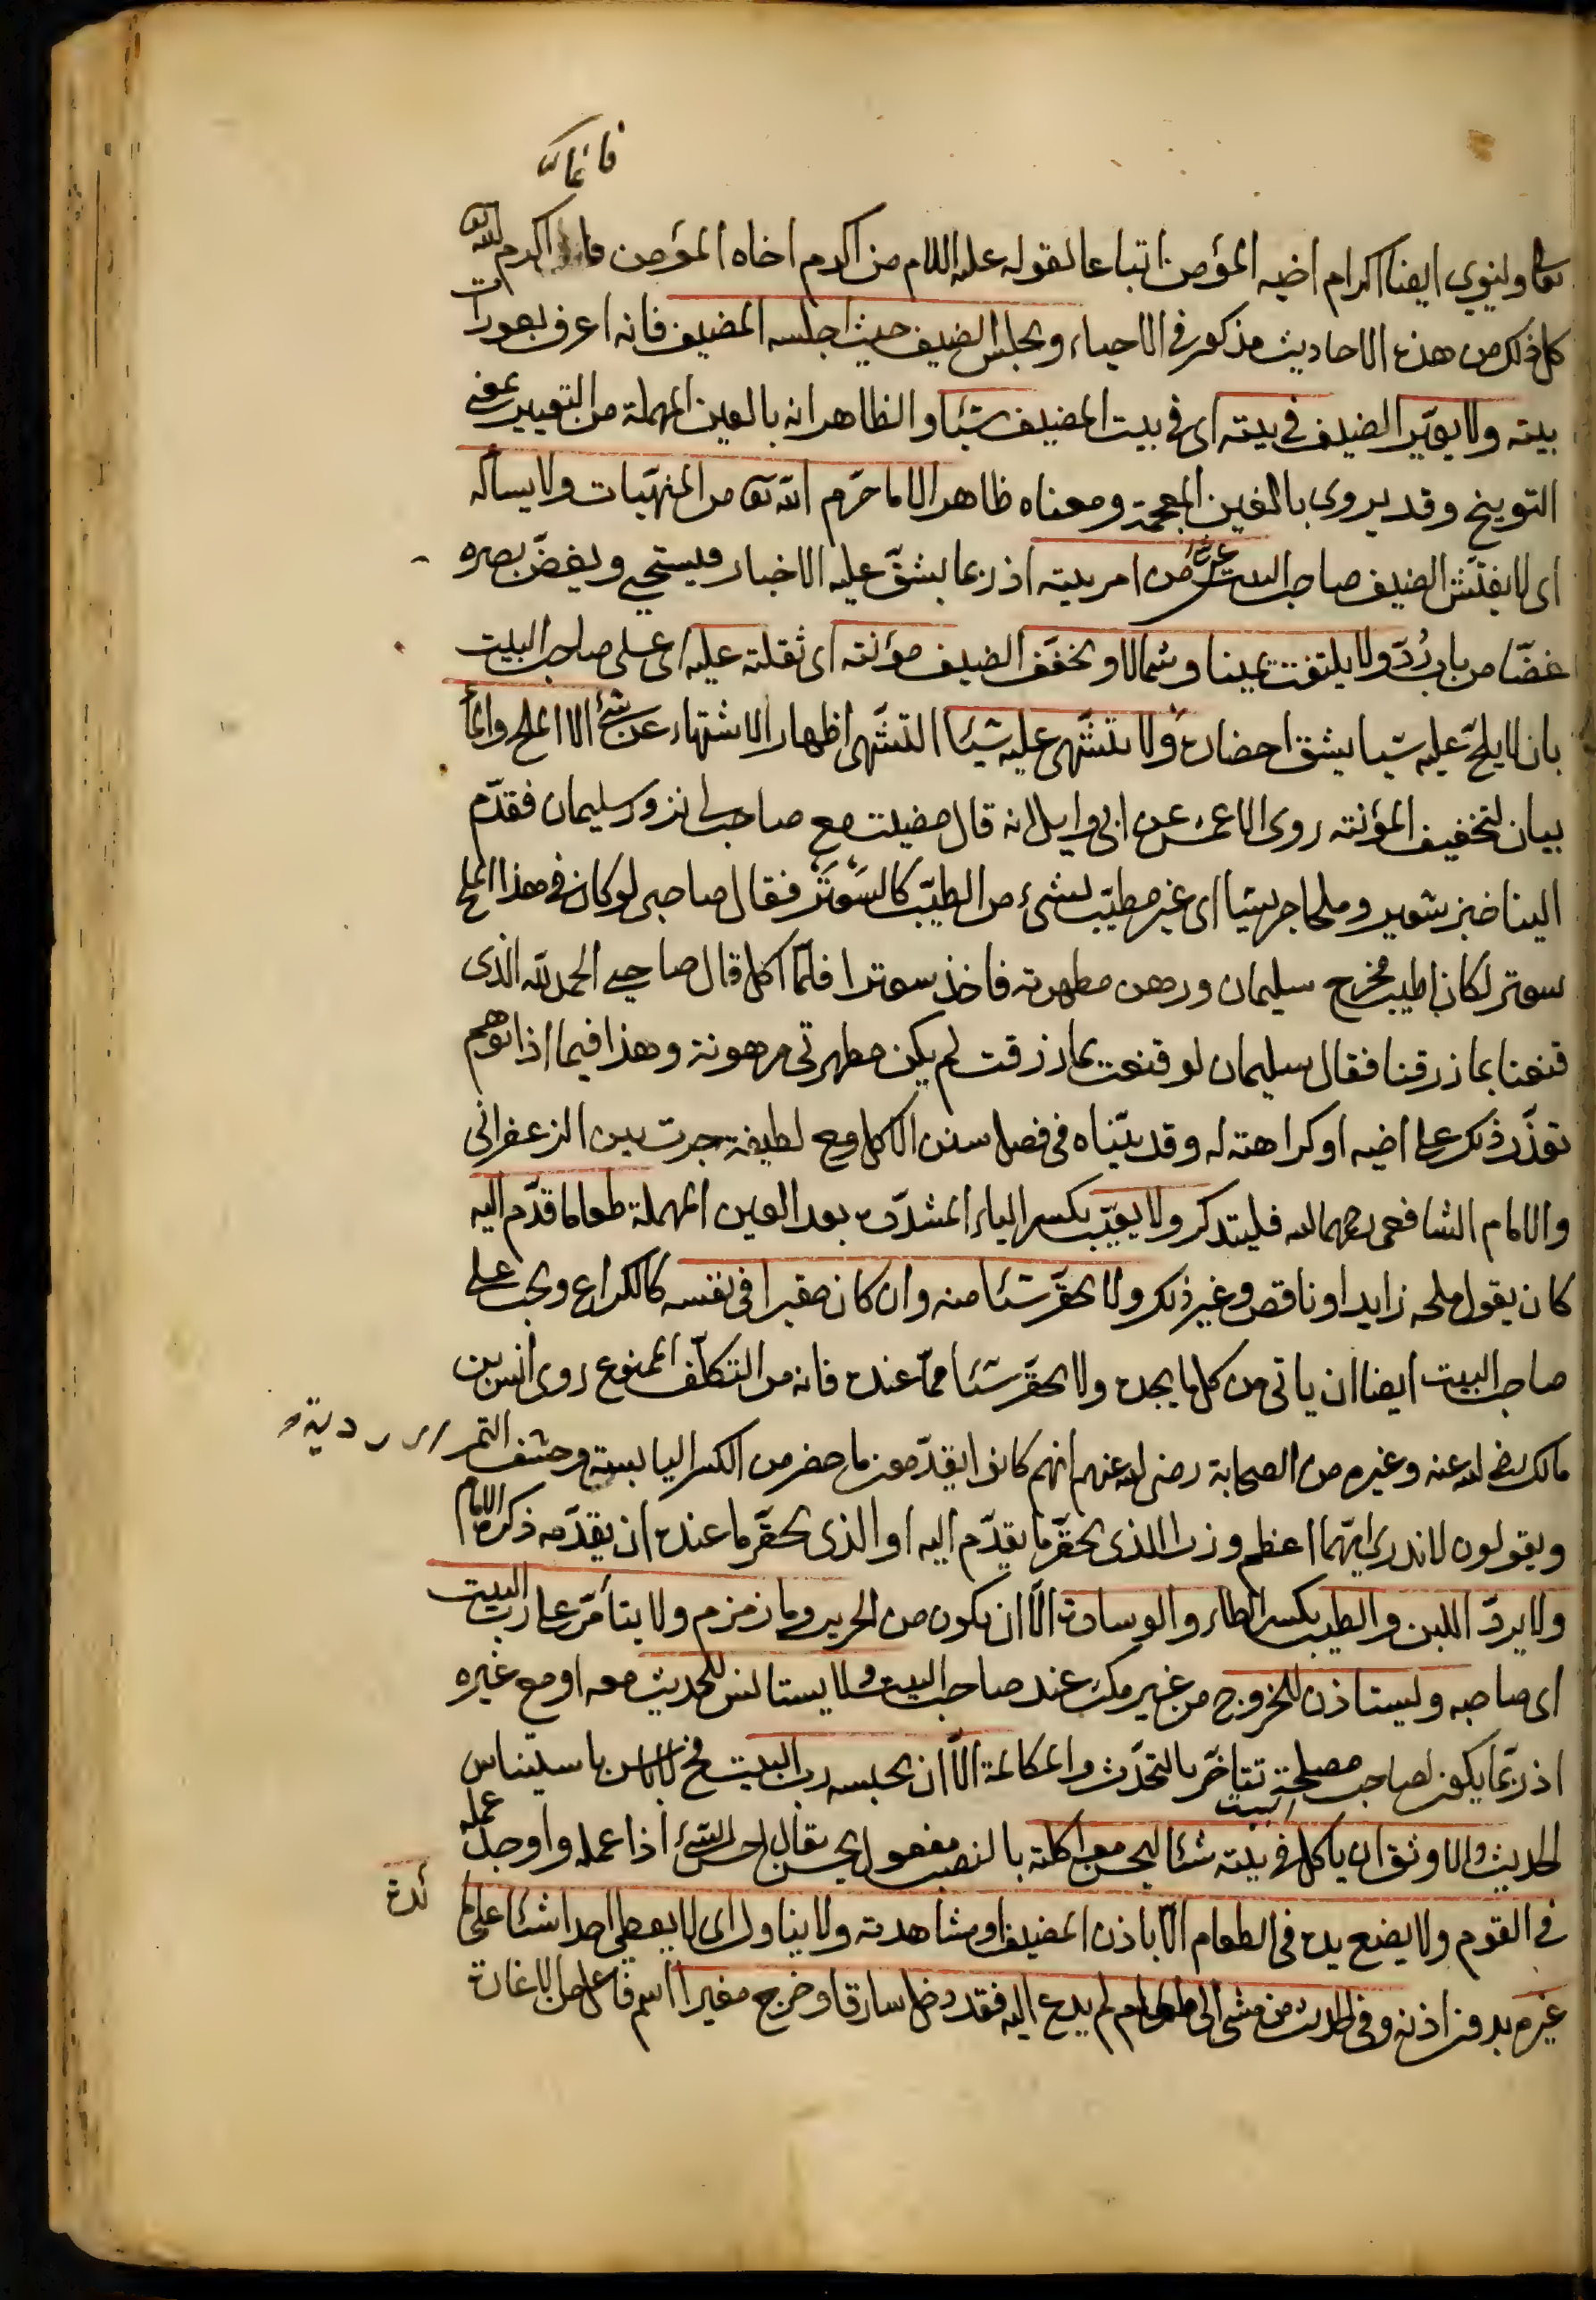 فانما
تعالى ولينوي ايضا اكرام اخيه المؤمن اتباعا لقوله عليه السلام من اكرم اخاه المؤمن فانما اكرم الله تع
كل ذلك من هذه الاحاديث مذكور في الاحياء ويجلس الضيف حيث اجلسه المضيف فانه اعرف بعورات
بيته ولا يعيّر الضيف في بيته اى في بيت المضيف شيئا والظاهر انه بالعين المهملة من التعيير بمعنى
التوبيخ وقد يروى بالغين المعجمة ومعناه ظاهر الا ما حرّم الله تع من المنهيّات ولا يسأله
اى لا يفتّش الضيف صاحب البيت عن شئ من امر بيته اذ ربما يشقّ عليه الاخبار فيستحيى ويغضّ بصره
غضّا من باب ردّ ولا يلتفت يمينا وشمالا ويخفّف الضيف مؤنته اى ثقلته عليه اى على صاحب البيت
بان لا يلحّ عليه شيا يشق احضاره ولا يتشهّى عليه شيئا التشهّى اظهار الاشتهاء عن شئ الا الملح والماء
بيان لتخفيف المؤنته روى الاعمش عن ابى وايل انه قال مضيت مع صاحب لى نزور سليمان فقدّم
الينا خبز شعير وملحا جريشا اى غير مطيّب بشىء من الطيّب كالسَعْتَر فقال صاحبى لو كان فى هذا الملح
سعتر لكان اطيب فخرج سليمان ورهن مطهرته فاخذ سعترا فلمّا اكل قال صاحبى الحمد لله الذى
قنعنا بما رزقنا فقال سليمان لو قنعت بما رزقت لم يكن مطهرتى مرهونة وهذا فيما اذا توهم
تعذّر ذلك على اخيه او كراهته له وقد بيّناه فى فصل سنن الاكل مع لطيفة جرت بين الزعفرانى
والامام الشافعى رحمهما الله فليتذكر ولا يعيّب بكسر الياء المشدّدة بعد العين المهملة طعاما قدّم اليه
كان يقول ملحه زايد او ناقص وغير ذلك ولا يحقّر شيئا منه وان كان حقيرا فى نفسه كالكراع ويجب على
صاحب البيت ايضا ان ياتى من كل ما يجده ولا يحقّر شيئا ممّا عنده فانه من التكلّف الممنوع روى انس بن
مالك رضى الله عنه وغيره من الصحابة رضى الله عنهم انهم كانوا يقدّمون ما حضر من الكسر اليابسة وحشف التمر
ويقولون لا ندرى ايّهما اعظم وزرا الذى يحقّر ما يقدّم اليه او الذى يحقّر ما عنده ان يقدّمه ذكره الامام
ولا يردّ اللبن والطيب بكسر الطاء والوسادة الّا ان يكون من الحرير وما زمزم ولا يتأمّر على ربّ البيت
اى صاحبه وليستاذن للخروج من غير مكث عند صاحب البيت ولا يستانس للحديث معه او مع غيره
اذ ربّما يكون لصاحب البيت مصلحة تتاخّر بالتحدّث والمكالمة الّا ان يحبسه رب البيت فح لا باس باستيناس
الحديث والاوثق ان ياكل فى بيته شيئا ليحسن مواكلته بالنصب مفعول يحسن يقال احسن الشئ اذا عمله واوجد عمله
فى القوم ولا يضع يده فى الطعام الّا باذن المضيف او مشاهدته ولا يناول اى لا يعطى احدا شيئا على
غيره بدون اذنه وفى الحديث من مشى الى طعام لم يدع اليه فقد دخل سارقا وخرج مغيرا اسم فاعل من الاغارة